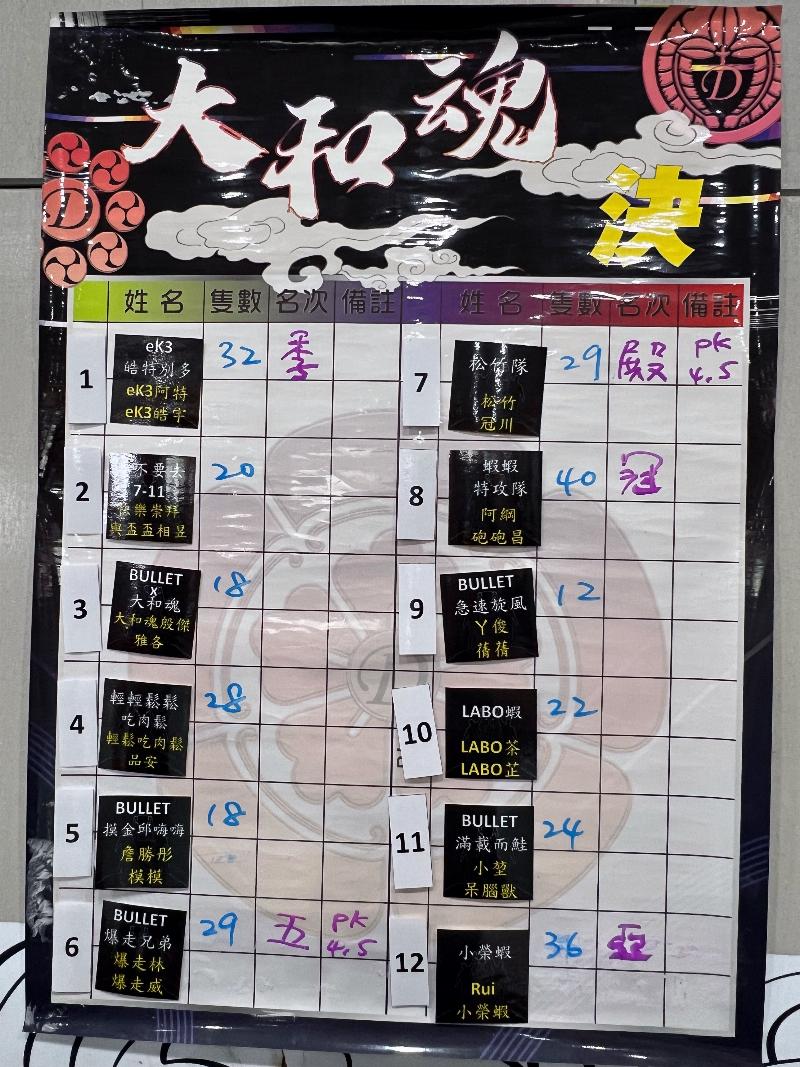 大和魂
決
姓名 隻數 名次 備註
1 eK3 32 季
皓特別多
eK3阿特
eK3皓宇
2 不要去 20
7-11
快樂崇拜
與盃盃相昱
3 BULLET 18
x
大和魂
大和魂殷傑
雅各
4 輕輕鬆鬆 28
吃肉鬆
輕鬆吃肉鬆
品安
5 BULLET 18
摸金邱嗨嗨
詹勝彤
模模
6 BULLET 29 五 pk
爆走兄弟 4.5
爆走林
爆走威
姓名 隻數 名次 備註
7 松竹隊 29 殿 pk
松竹 4.5
冠川
8 蝦蝦 40 冠
特攻隊
阿綱
砲砲昌
9 BULLET 12
急速旋風
丫俊
蒨蒨
10 LABO蝦 22
LABO茶
LABO芷
11 BULLET 24
滿載而鮭
小堃
呆腦獸
12 小榮蝦 36 亞
Rui
小榮蝦